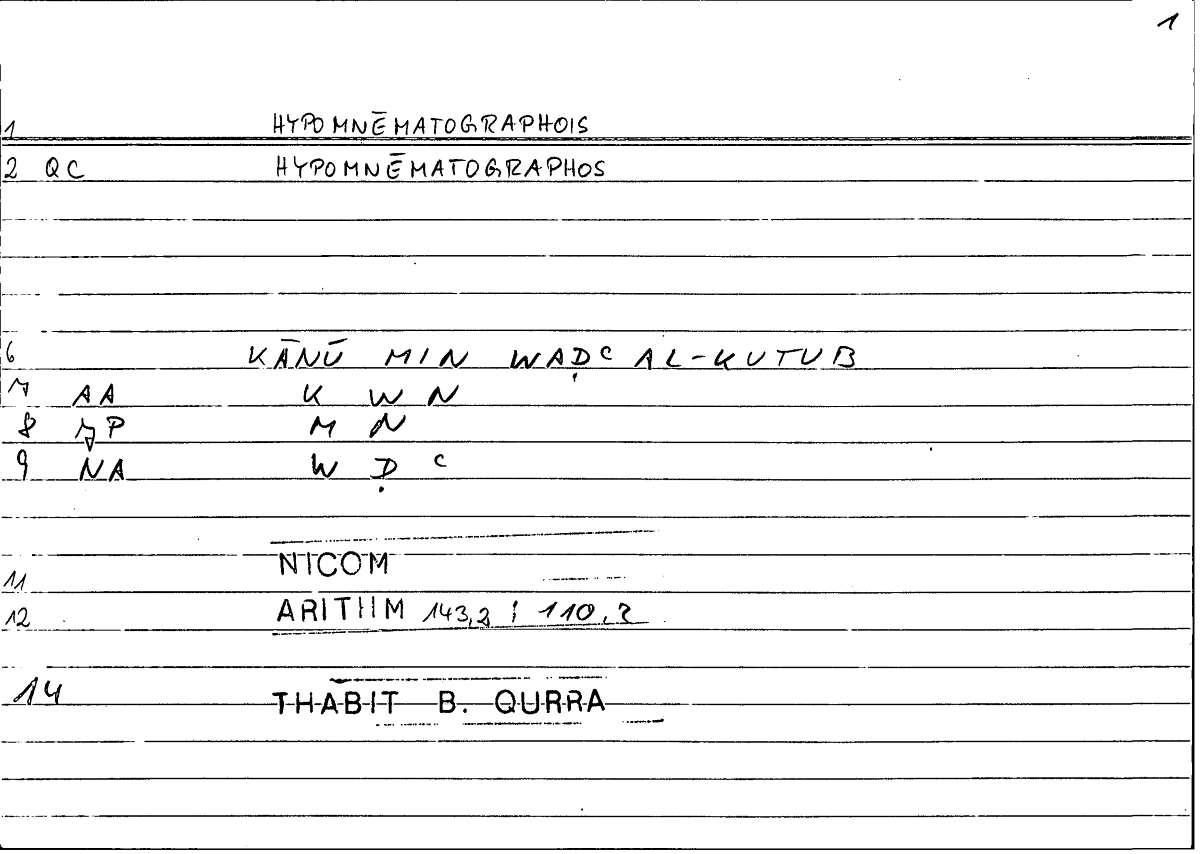 1
1 HYPOMNĒMATOGRAPHOIS
2 QC HYPOMNĒMATOGRAPHOS
6 KĀNŪ MIN WAḌC AL-KUTUB
7 AA K W N
8 JP M N
9 NA W Ḍ C
11 NICOM
12 ARITHM 143,2 ; 110,2
14 THABIT B. QURRA